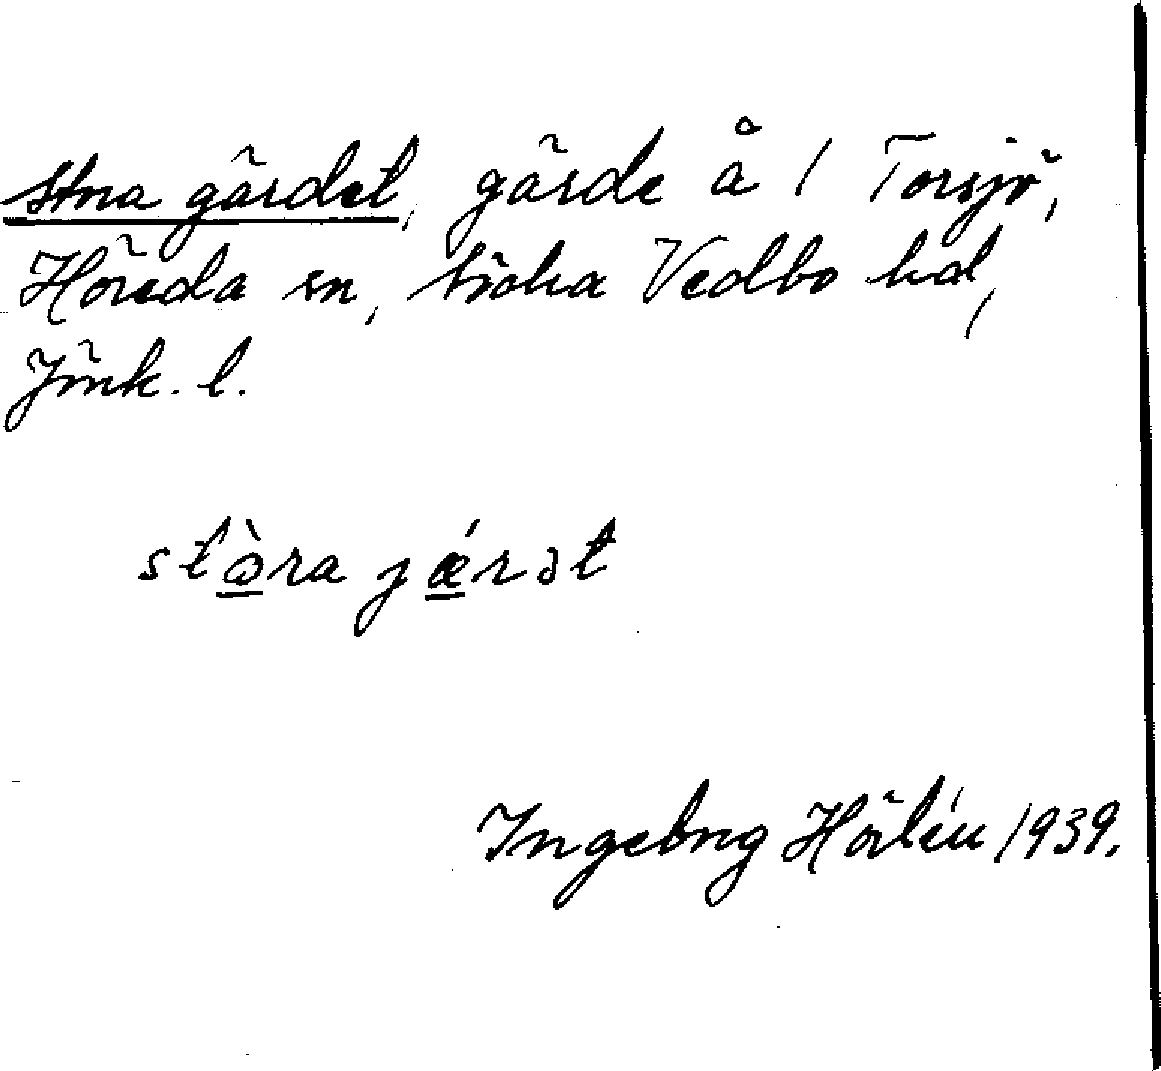 Stora gärdet, gärde å 1 Torsjö,
Höreda sn, Södra Vedbo hd,
Jönk. l.
stòra jǽrət
Ingeborg Hörlén 1939.